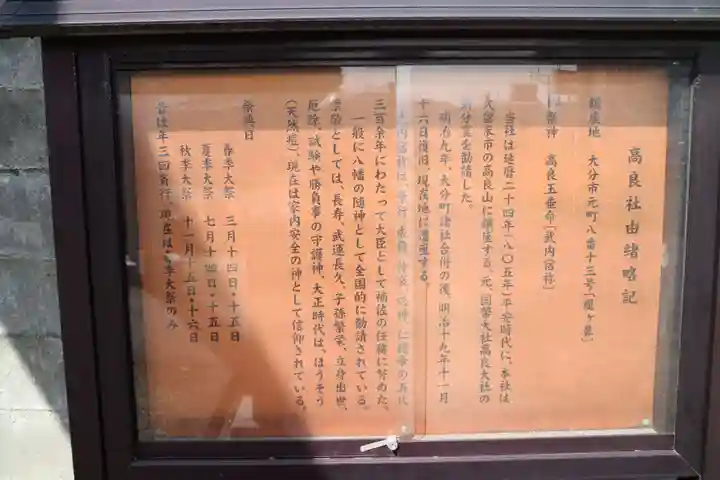 高良社由緒略記
鎮座地 大分市元町八番十三号
祭神 高良玉垂命(武内宿祢)
当社は延暦二十四年(八〇五年)平安時代に、本社は
久留米市の高良山に鎮座する、元、国幣大社高良大社の
御分霊を勧請した。
明治九年、大分町諸社合併の後、明治十九年十一月
十六日復旧、現在地に遷座する。
三百余年にわたって大臣として補佐の任務に努めた。
一般に八幡の随神として全国的に勧請されている。
崇敬としては、長寿、武運長久、子孫繁栄、立身出世、
厄除、試験や勝負事の守護神、大正時代は、ほうそう
(天然痘)、現在は家内安全の神として信仰されている。
祭典日
春季大祭 三月十四日・十五日
夏季大祭 七月十四日・十五日
秋季大祭 十一月十五日・十六日
昔は年三回斎行、現在は 季大祭のみ